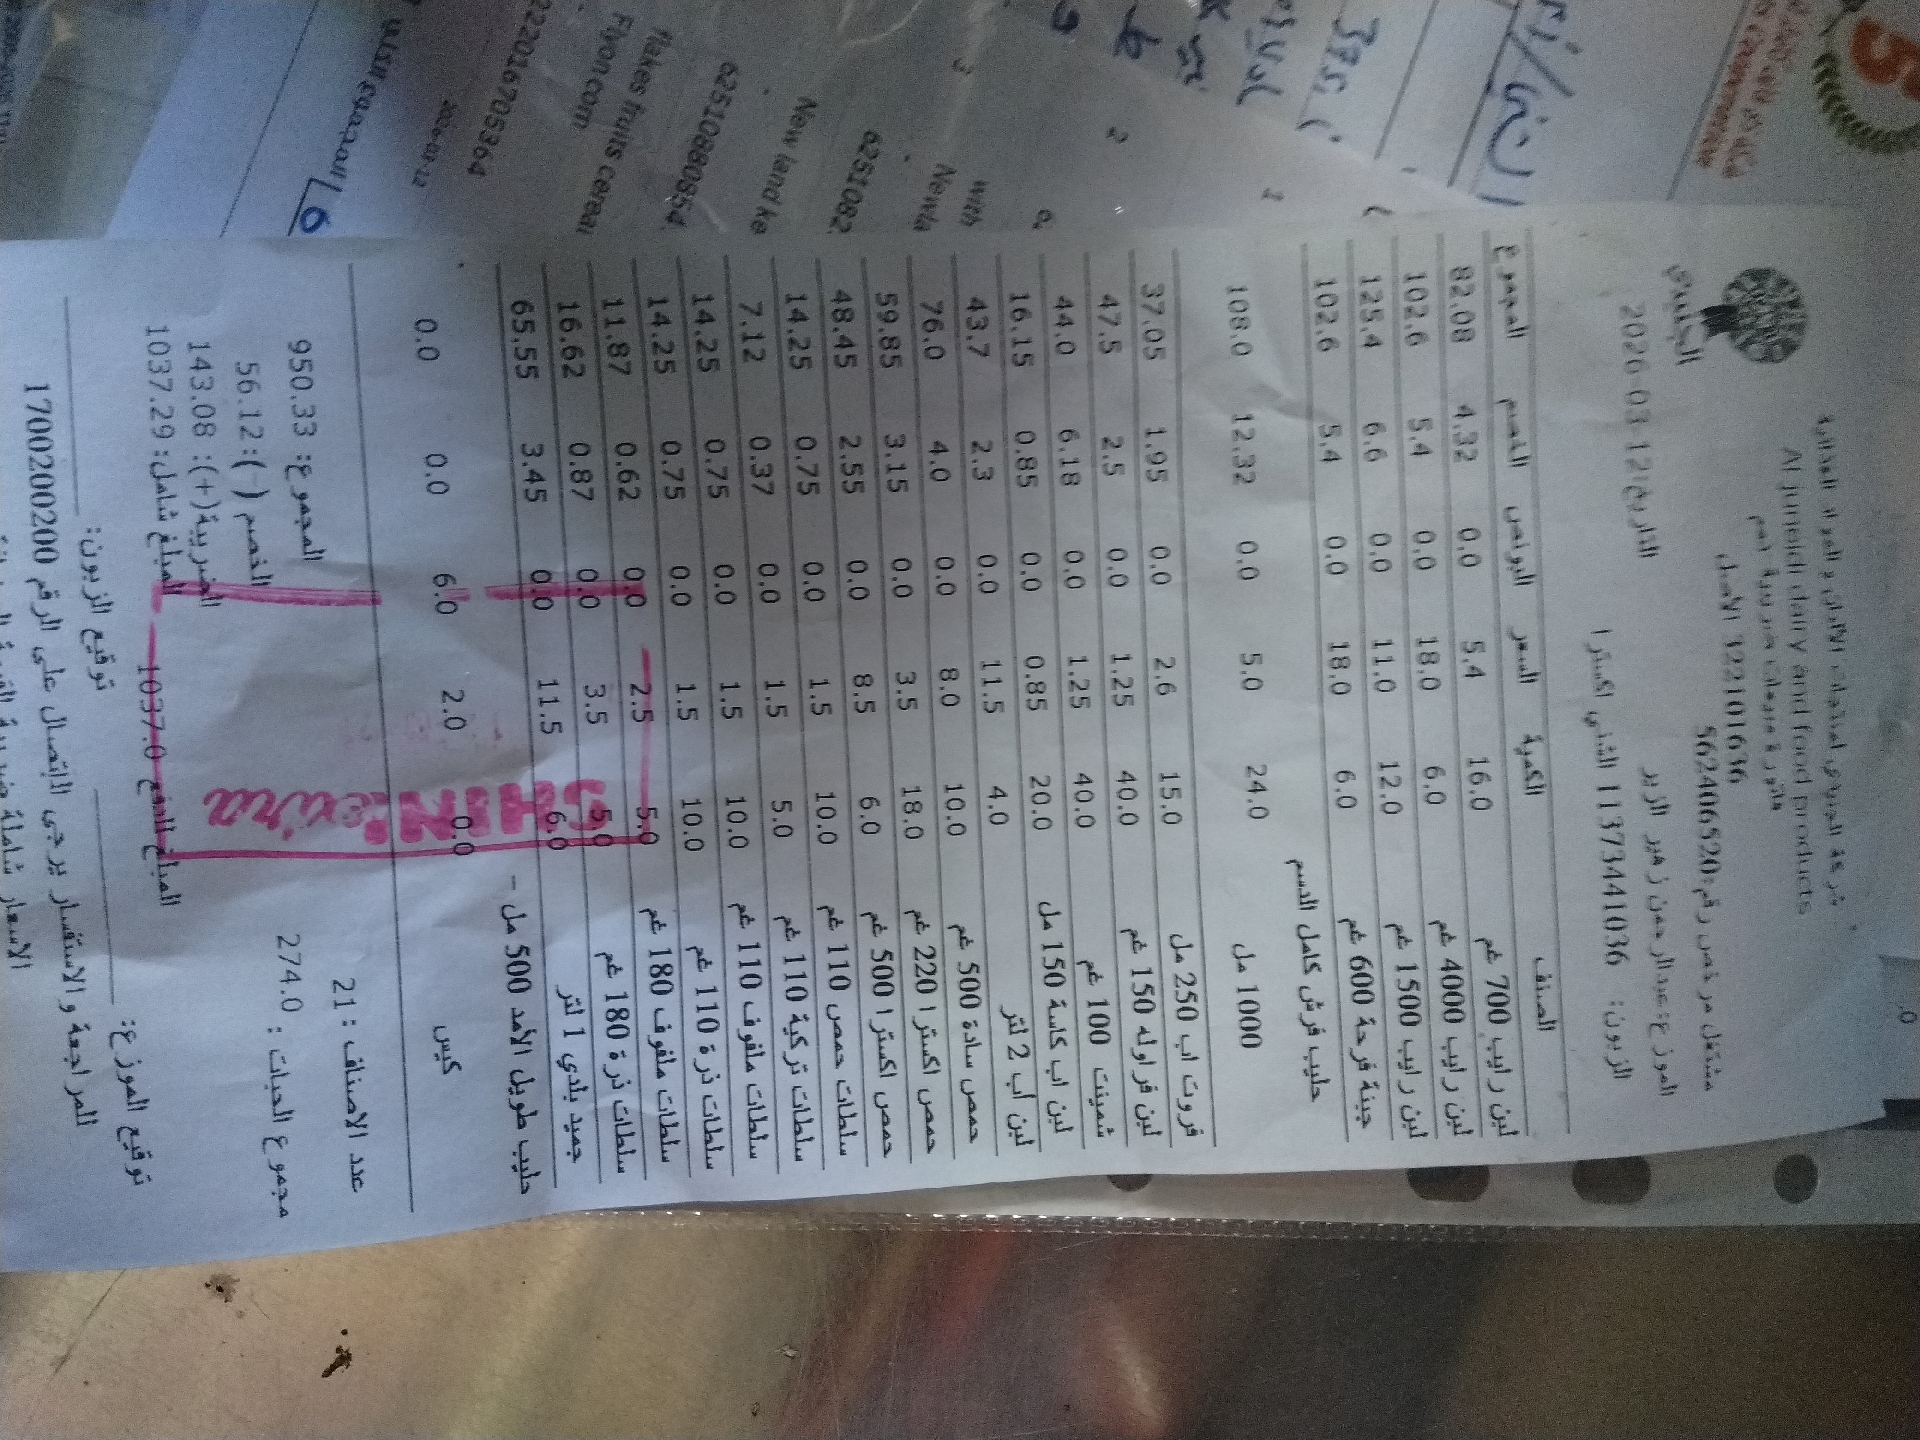 الجنيدي
شركة الجنيدي لمنتجات الألبان و المواد الغذائية
Al juneidi dairy and food products
فاتورة مبيعات ضريبية رقم
3221101636 الأصل
مشتغل مرخص رقم:562406520
الموزع: عبدالرحمن زهير الزير
التاريخ: 2026-03-12
الزبون: 1137344036 الشني اكسترا
الصنف الكمية السعر البونص الخصم المجموع
لبن رايب 700 غم 16.0 5.4 0.0 4.32 82.08
لبن رايب 4000 غم 6.0 18.0 0.0 5.4 102.6
لبن رايب 1500 غم 12.0 11.0 0.0 6.6 125.4
جبنة فرحة 600 غم 6.0 18.0 0.0 5.4 102.6
حليب فرش كامل الدسم
1000 مل 24.0 5.0 0.0 12.32 108.0
فروت اب 250 مل 15.0 2.6 0.0 1.95 37.05
لبن فراوله 150 غم 40.0 1.25 0.0 2.5 47.5
شمينت 100 غم 40.0 1.25 0.0 6.18 44.0
لبن اب كاسة 150 مل 20.0 0.85 0.0 0.85 16.15
لبن أب 2 لتر 4.0 11.5 0.0 2.3 43.7
حمص سادة 500 غم 10.0 8.0 0.0 4.0 76.0
حمص اكسترا 220 غم 18.0 3.5 0.0 3.15 59.85
حمص اكسترا 500 غم 6.0 8.5 0.0 2.55 48.45
سلطات حمص 110 غم 10.0 1.5 0.0 0.75 14.25
سلطات تركية 110 غم 5.0 1.5 0.0 0.37 7.12
سلطات ملفوف 110 غم 10.0 1.5 0.0 0.75 14.25
سلطات ذرة 110 غم 10.0 1.5 0.0 0.75 14.25
سلطات ملفوف 180 غم 5.0 2.5 0.0 0.62 11.87
سلطات ذرة 180 غم 5.0 3.5 0.0 0.87 16.62
جميد بلدي 1 لتر 6.0 11.5 0.0 3.45 65.55
حليب طويل الأمد 500 مل -
كيس 0.0 2.0 6.0 0.0 0.0
SHINI extra
عدد الاصناف : 21
المجموع: 950.33
مجموع الحبات : 274.0
الخصم (-): 56.12
الضريبة(+): 143.08
المبلغ شامل: 1037.29
المبلغ للدفع 1037.0
توقيع الموزع:
توقيع الزبون:
للمراجعة و الاستفسار يرجى الاتصال على الرقم 1700200200
الاسعار شاملة ضريبة القيمة
222016705364
Flyon corn
flakes fruits cereal
6251080880854
New land ke
6251082
Newla
with
2026-03-12
375